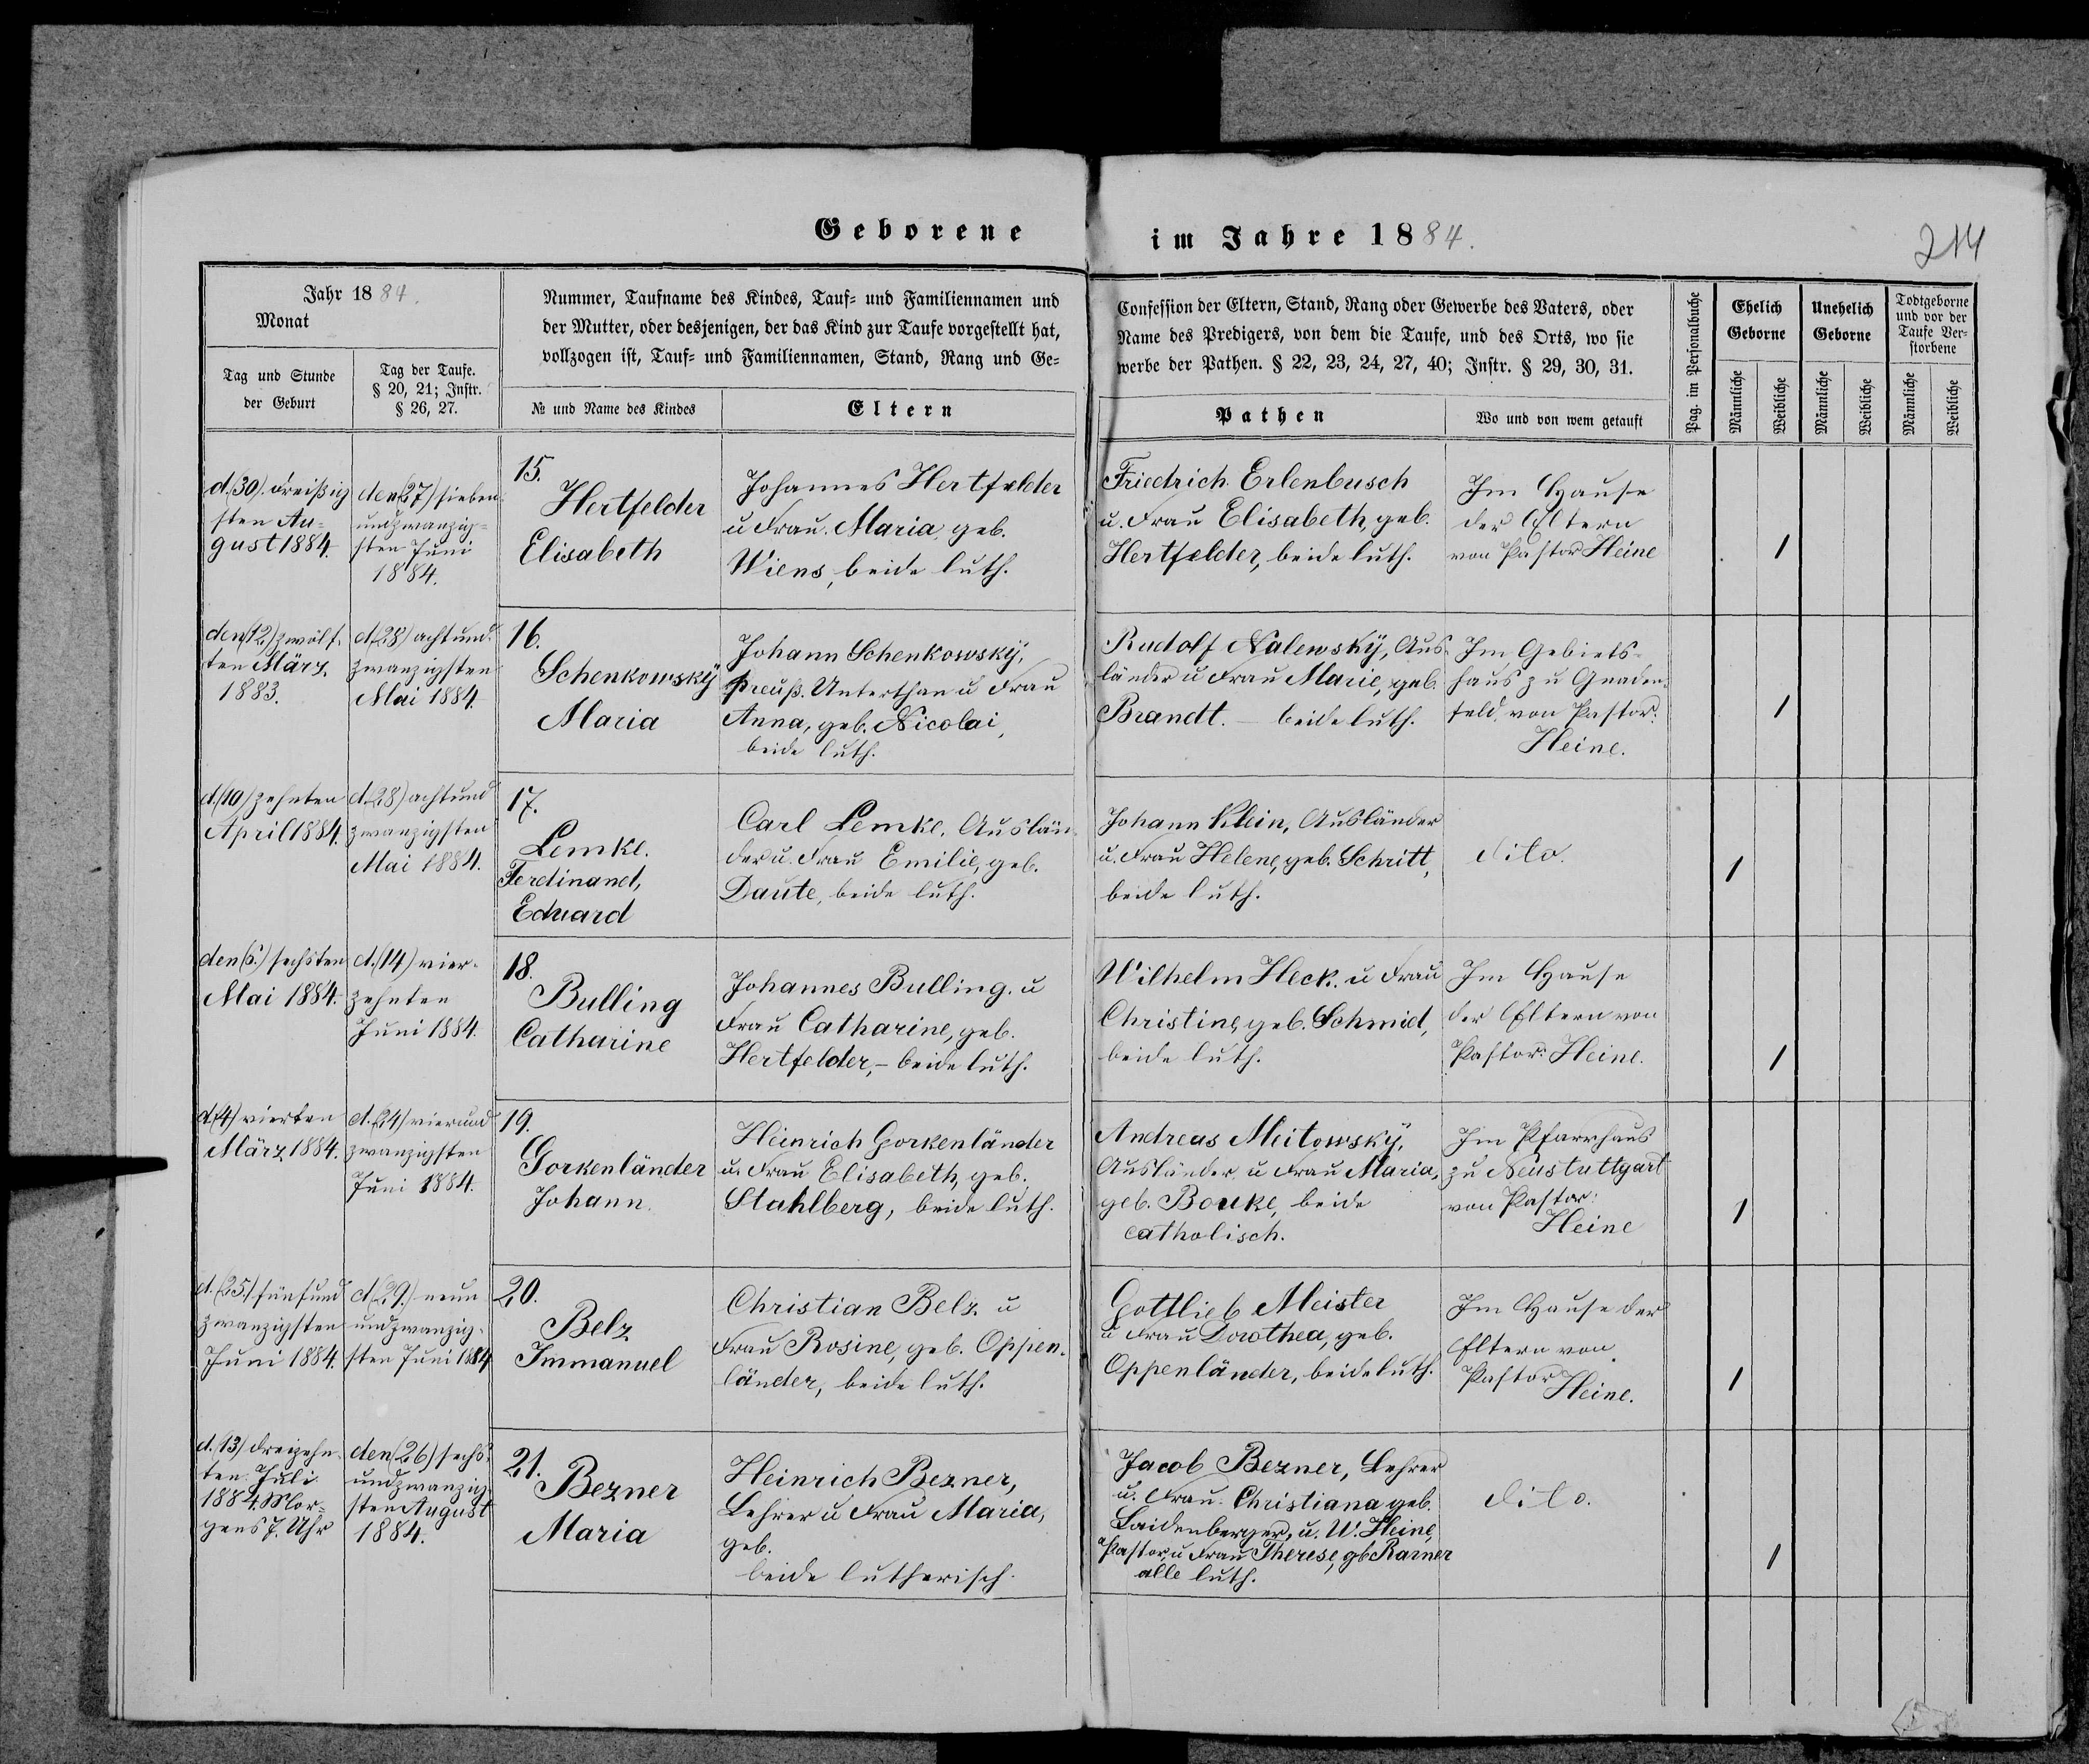 Geborene
im Jahre 1884.
214
Jahr 1884.
Monat
Tag und Stunde
der Geburt
Tag der Taufe.
§ 20, 21; Instr.
§ 26, 27.
Nummer, Taufname des Kindes, Tauf- und Familiennamen und
der Mutter, oder desjenigen, der das Kind zur Taufe vorgestellt hat,
vollzogen ist, Tauf- und Familiennamen, Stand, Rang und Ge-
№ und Name des Kindes
Eltern
Confession der Eltern, Stand, Rang oder Gewerbe des Vaters, oder
Name des Predigers, von dem die Taufe, und des Orts, wo sie
werbe der Pathen. § 22, 23, 24, 27, 40; Instr. § 29, 30, 31.
Pathen
Wo und von wem getauft
Pag. im Personalbuche
Ehelich
Geborne
Unehelich
Geborne
Todtgeborne
und vor der
Taufe Ver-
storbene
Männliche
Weibliche
Männliche
Weibliche
Männliche
Weibliche
d. (30). dreißig
sten Au-
gust 1884.
den (27) sieben
undzwanzig-
sten Juni
1884.
15.
Hertfelder
Elisabeth
Johannes Hertfelder
u Frau Maria, geb.
Wiens, beide luth.
Friedrich Erlenbusch
u. Frau Elisabeth, geb.
Hertfelder, beide luth.
Im Hause
der Eltern
von Pastor Heine
1
den (12) zwölf-
ten März
1883.
d. (28) achtund-
zwanzigsten
Mai 1884.
16.
Schenkowskÿ
Maria
Johann Schenkowskÿ,
preuß. Unterthan u Frau
Anna, geb. Nicolai,
beide luth.
Rudolf Nalewskÿ, Aus-
länder u Frau Marie, geb.
Brandt. — beide luth.
Im Gebiets-
haus zu Gnaden-
feld von Pastor:
Heine.
1
d. (10) zehnten
April 1884.
d. (28) achtund
zwanzigsten
Mai 1884.
17.
Lemke.
Ferdinand,
Eduard
Carl Lemke, Auslän-
der u. Frau Emilie, geb.
Daute, beide luth.
Johann Klein, Ausländer
u. Frau Helene, geb. Schritt,
beide luth.
dito.
1
den (6.) sechsten
Mai 1884.
d. (14) vier-
zehnten
Juni 1884.
18.
Bulling
Catharine
Johannes Bulling. u
Frau Catharine, geb.
Hertfelder, – beide luth.
Wilhelm Heck. u Frau
Christine, geb. Schmid,
beide luth.
Im Hause
der Eltern von
Pastor: Heine.
1
d. (4) vierten
März 1884.
d. (24) vierund
zwanzigsten
Juni 1884.
19.
Gorkenländer
Johann.
Heinrich Gorkenländer
u. Frau Elisabeth, geb.
Stahlberg, beide luth.
Andreas Meitowskÿ,
Ausländer u Frau Maria,
geb. Bouke, beide
catholisch.
Im Pfarrhaus
zu Neustuttgart
von Pastor:
Heine
1
d. (25.) fünfund
zwanzigsten
Juni 1884.
d. (29.) neun
undzwanzig-
sten Juni 1884
20.
Belz
Immanuel
Christian Belz. u
Frau Rosine, geb. Oppen-
länder, beide luth.
Gottlieb Meister
u Frau Dorothea, geb.
Oppenländer, beide luth.
Im Hause der
Eltern von
Pastor Heine.
1
d. (13) dreizehn-
ten Juli
1884. Mor-
gens 7. Uhr
den (26) sechs-
undzwanzig-
sten August
1884.
21.
Bezner
Maria
Heinrich Bezner,
Lehrer u Frau Maria,
geb.
beide lutherisch.
Jacob Bezner, Lehrer
u. Frau Christiana geb.
Laidenberger, u. W. Heine,
Pastor u Frau Therese, gb. Rarner
alle luth.
dito.
1